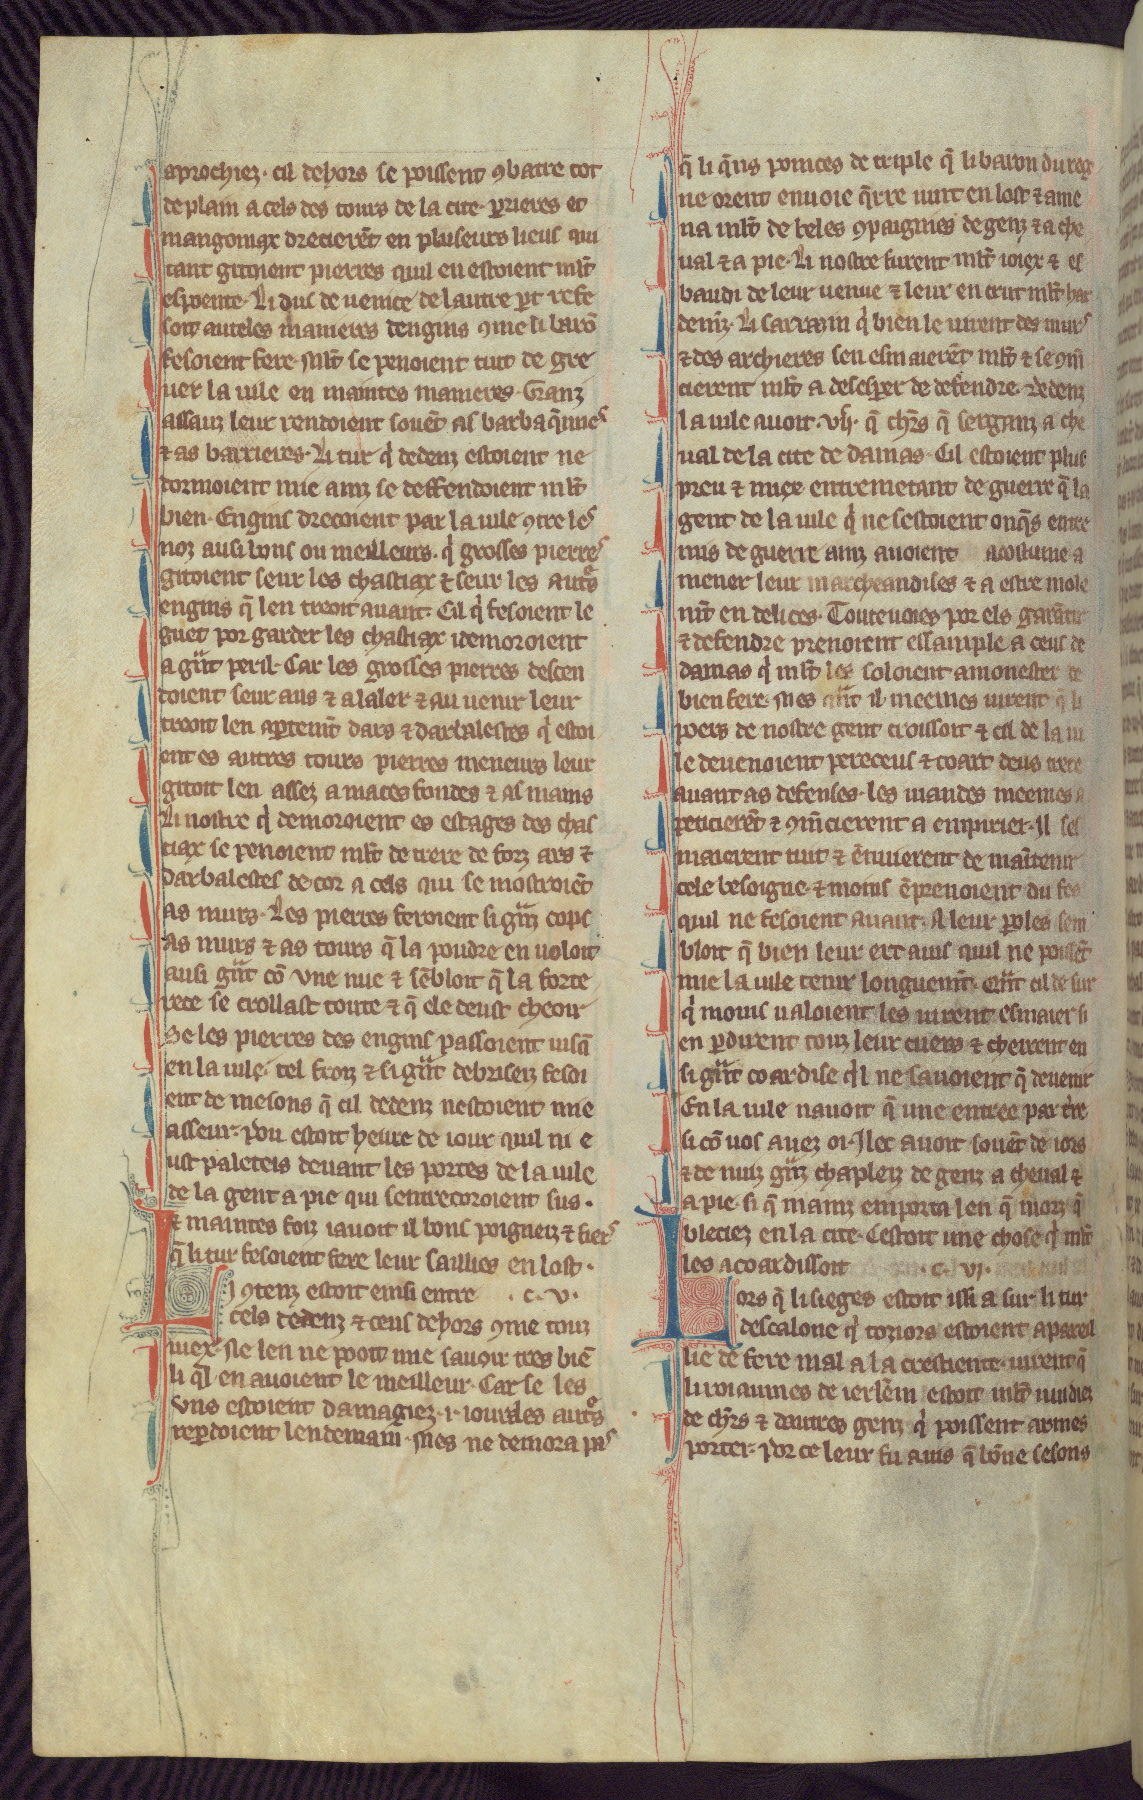 aprochiez. cil dehors se poissent ꝯbatre tot
de plain a cels des tours de la cite. ꝑrieres et
mangoniax drecierẽt en pluseurs lieus qui
tant gitoient pierres quil en estoient ml̃t
espoente. Li dus de venice de lautre ꝑt refe
soit auteles manieres dengins ꝯme li barõ
fesoient fere. Ml̃t se penoient tuit de gre
uer la uile en maintes manieres. Granz
assauz leur rendoient souẽt as barbaq̃nnes
⁊ as barrieres. Li tur q̇ dedenz estoient ne
dormoient mie ainz se deffendoient ml̃t
bien. Engins drecoient par la uile ꝯtre les
noz ausi bons ou meilleurs. q̇ grosses pierres
gitoient seur les chastiax ⁊ seur les autͦs
engins q̃ len treoit auant. Cil q̇ fesoient le
guet por garder les chastiax i demoroient
a g̃nt peril. Car les grosses pierres descen
doient seur aus ⁊ a laler ⁊ au uenir leur
treoit len aꝑtemt̃ dars ⁊ darbalestes q̇ estoi
ent es autres tours pierres meneurs leur
gitoit len assez a maces fondes ⁊ as mains
Li nostre q̇ demoroient es estages des chas
tiax se penoient ml̃t de trere de forz ars ⁊
darbalestes de cor a cels qui se mostroiẽt
as murs. Les pierres feroient si g̃nz cops
as murs ⁊ as tours q̃ la poudre en uoloit
ausi g̃nt cõ vne nue ⁊ sẽbloit q̃ la forte
rece se crollast toute ⁊ q̃ ele deust cheoir
Se les pierres des engins passoient iusq̃
en la uile. tel froiz ⁊ si g̃nt debriseiz fesoi
ent de mesons q̃ cil dedenz nestoient mie
asseur. Pou estoit heure de iour quil ni e
ust paleteis deuant les portes de la uile
de la gent a pie qui sentrecoroient sus.
⁊ maintes foiz iauoit il bons poigneiz ⁊ fiers
q̃ li tur fesoient fere leur saillies en lost.
Lꝯtenz estoit einsi entre .c.v.
cels dedenz ⁊ ceus dehors ꝯme touz
iuex. Ne len ne pooit mie sauoir tres biẽ
li q̃l en auoient le meilleur. Car se les
vns estoient damagiez .i. iour les autͦs
reꝑdoient lendemain. Mes ne demora pas
q̃ li q̃ns poinces de triple q̃ li baron du reg
ne orent enuoie q̃rre uint en lost ⁊ ame
na ml̃t de beles ꝯpaignies de genz ⁊ a che
ual ⁊ a pie. Li nostre furent ml̃t ioiex ⁊ es
baudi de leur uenue ⁊ leur en crut ml̃t har
demẽz. Li sarrazin q̇ bien le uirent des murs
⁊ des archieres sen esmaierẽt ml̃t ⁊ se ꝯm̃
cierent ml̃t a desesꝑer de defendre. Dedenz
la uile auoit .vij. q̃ chr̃s q̃ sergganz a che
ual de la cite de damas. Cil estoient plus
preu ⁊ miex entremetant de guerre q̃ la
gent de la uile q̇ ne sestoient onq̃s entre
mis de guerre ainz auoient acostume a
mener leur marcheandises ⁊ a estre mole
mt̃ en delices. Touteuoies por els garãtir
⁊ defendre prenoient essample a ceus de
damas q̇ ml̃t les soloient amonester de
bien fere. Mes q̃nt il meemes uirent q̃ li
poers de nostre gent croissoit ⁊ cil de la ui
le deuenoient pereceus ⁊ coart deus trere
auant as defenses. les uiandes meemes a
peticierẽt ⁊ ꝯm̃cierent a empirier. Il ses
maierent tuit ⁊ ẽnuierent de maĩtenir
cele besoigne. ⁊ moins ẽprenoient du fes
quil ne fesoient auant. A leur ꝑoles sem
bloit q̃ bien leur ert auis quil ne poissẽt
mie la uile tenir longuemt̃. Q̃nt cil de sur
q̇ moins ualoient les uirent esmaier si
en ꝑdirent touz leur cuers ⁊ cheirent en
si g̃nt coardise q̇l ne sauoient q̃ deuenir
En la uile nauoit q̃ une entree par t̃re
si cõ uos auez oi. Ilec auoit souẽt de iors
⁊ de nuiz g̃nz chapleiz de genz a cheual ⁊
a pie. si q̃ mainz emporta len q̃ morz q̃
bleciez en la cite. Cestoit une chose q̇ ml̃t
les acoardissoit .c.vj.
Lors q̃ li sieges estoit issi a sur li tur
descalone q̇ toziors estoient apareil
lie de fere mal a la crestiente. uirent q̃
li roiaumes de ierlẽm estoit ml̃t uuidiez
de chr̃s ⁊ dautres genz q̇ poissent armes
porter. Por ce leur fu auis q̃ bõne sesons